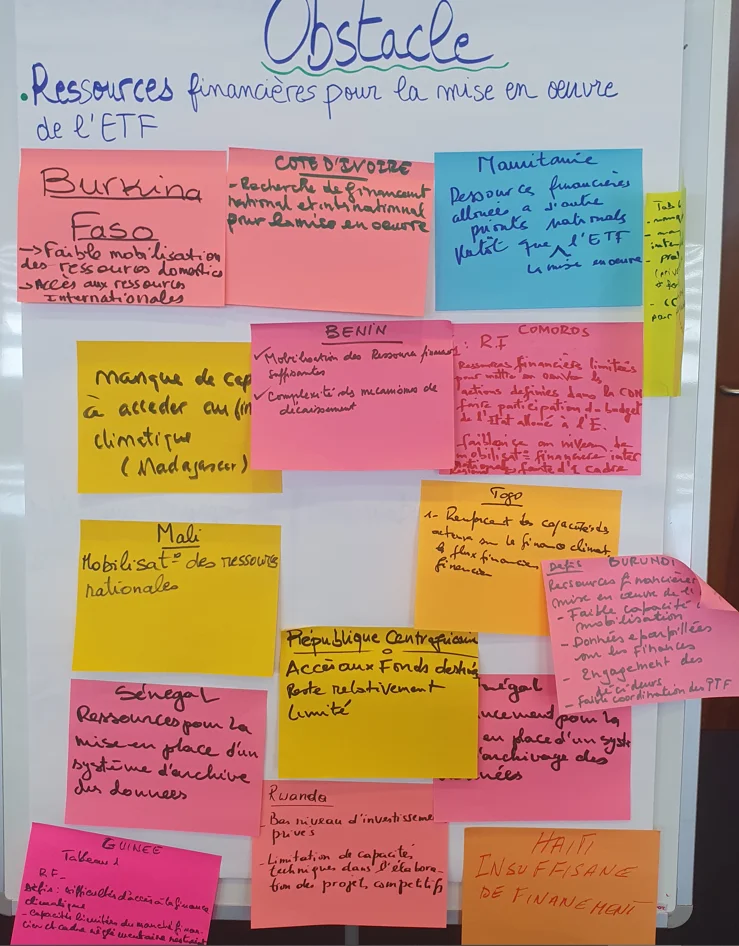 Obstacle
.Ressources financières pour la mise en œuvre
de l'ETF
Burkina
Faso
→ Faible mobilisation
des ressources domestic
→ Accès aux ressources
Internationales
COTE D'IVOIRE
- Recherche de financement
national et international
pour la mise en oeuvre
Mauritanie
Ressources financières
allouées a d'autre
priorités nationals
plutôt que l'ETF
la mise en oeuvre
manque de cap
à acceder au fin
climatique
(Madagascar)
BENIN
✓ Mobilisation des Ressource financ
suffisantes
✓ Complexité des mecanismes de
décaissement
COMORES
: R.F
Ressources financières limitées
pour mettre en oeuvre les
actions definies dans la CDN
faible participation du budget
de l'Etat alloué à l'E.
mobilisat° financière inter
faute d'1 cadre
Togo
1- Renforcer les capacités des
acteurs sur la finance climat
& flux financier
financier
Mali
Mobilisat° des ressources
nationales
Défis BURUNDI
Ressources financières
mise en œuvre de l'
- Faible capacité
mobilisation
- Données eparpillées
sur les finances
- Engagement des
décideurs
- faible coordination des PTF
République Centrafricain
Accès aux Fonds destinés
Reste relativement
limité
Sénégal
Ressources pour la
mise en place d'un
système d'archive
des données
négal
ncement pour la
en place d'un syst
'archivage des
nnées
Rwanda
- Bas niveau d'investisseme
privés
- Limitation de capacités
techniques dans l'élabora-
tion des projets compétitifs
GUINEE
Tableau 1
R.F_
Défis: difficultés d'accès à la finance
climatique
- Capacités limitées du marché finan-
cier et cadre réglementaire restreint
HAITI
INSUFFISANE
DE FINANEMENT